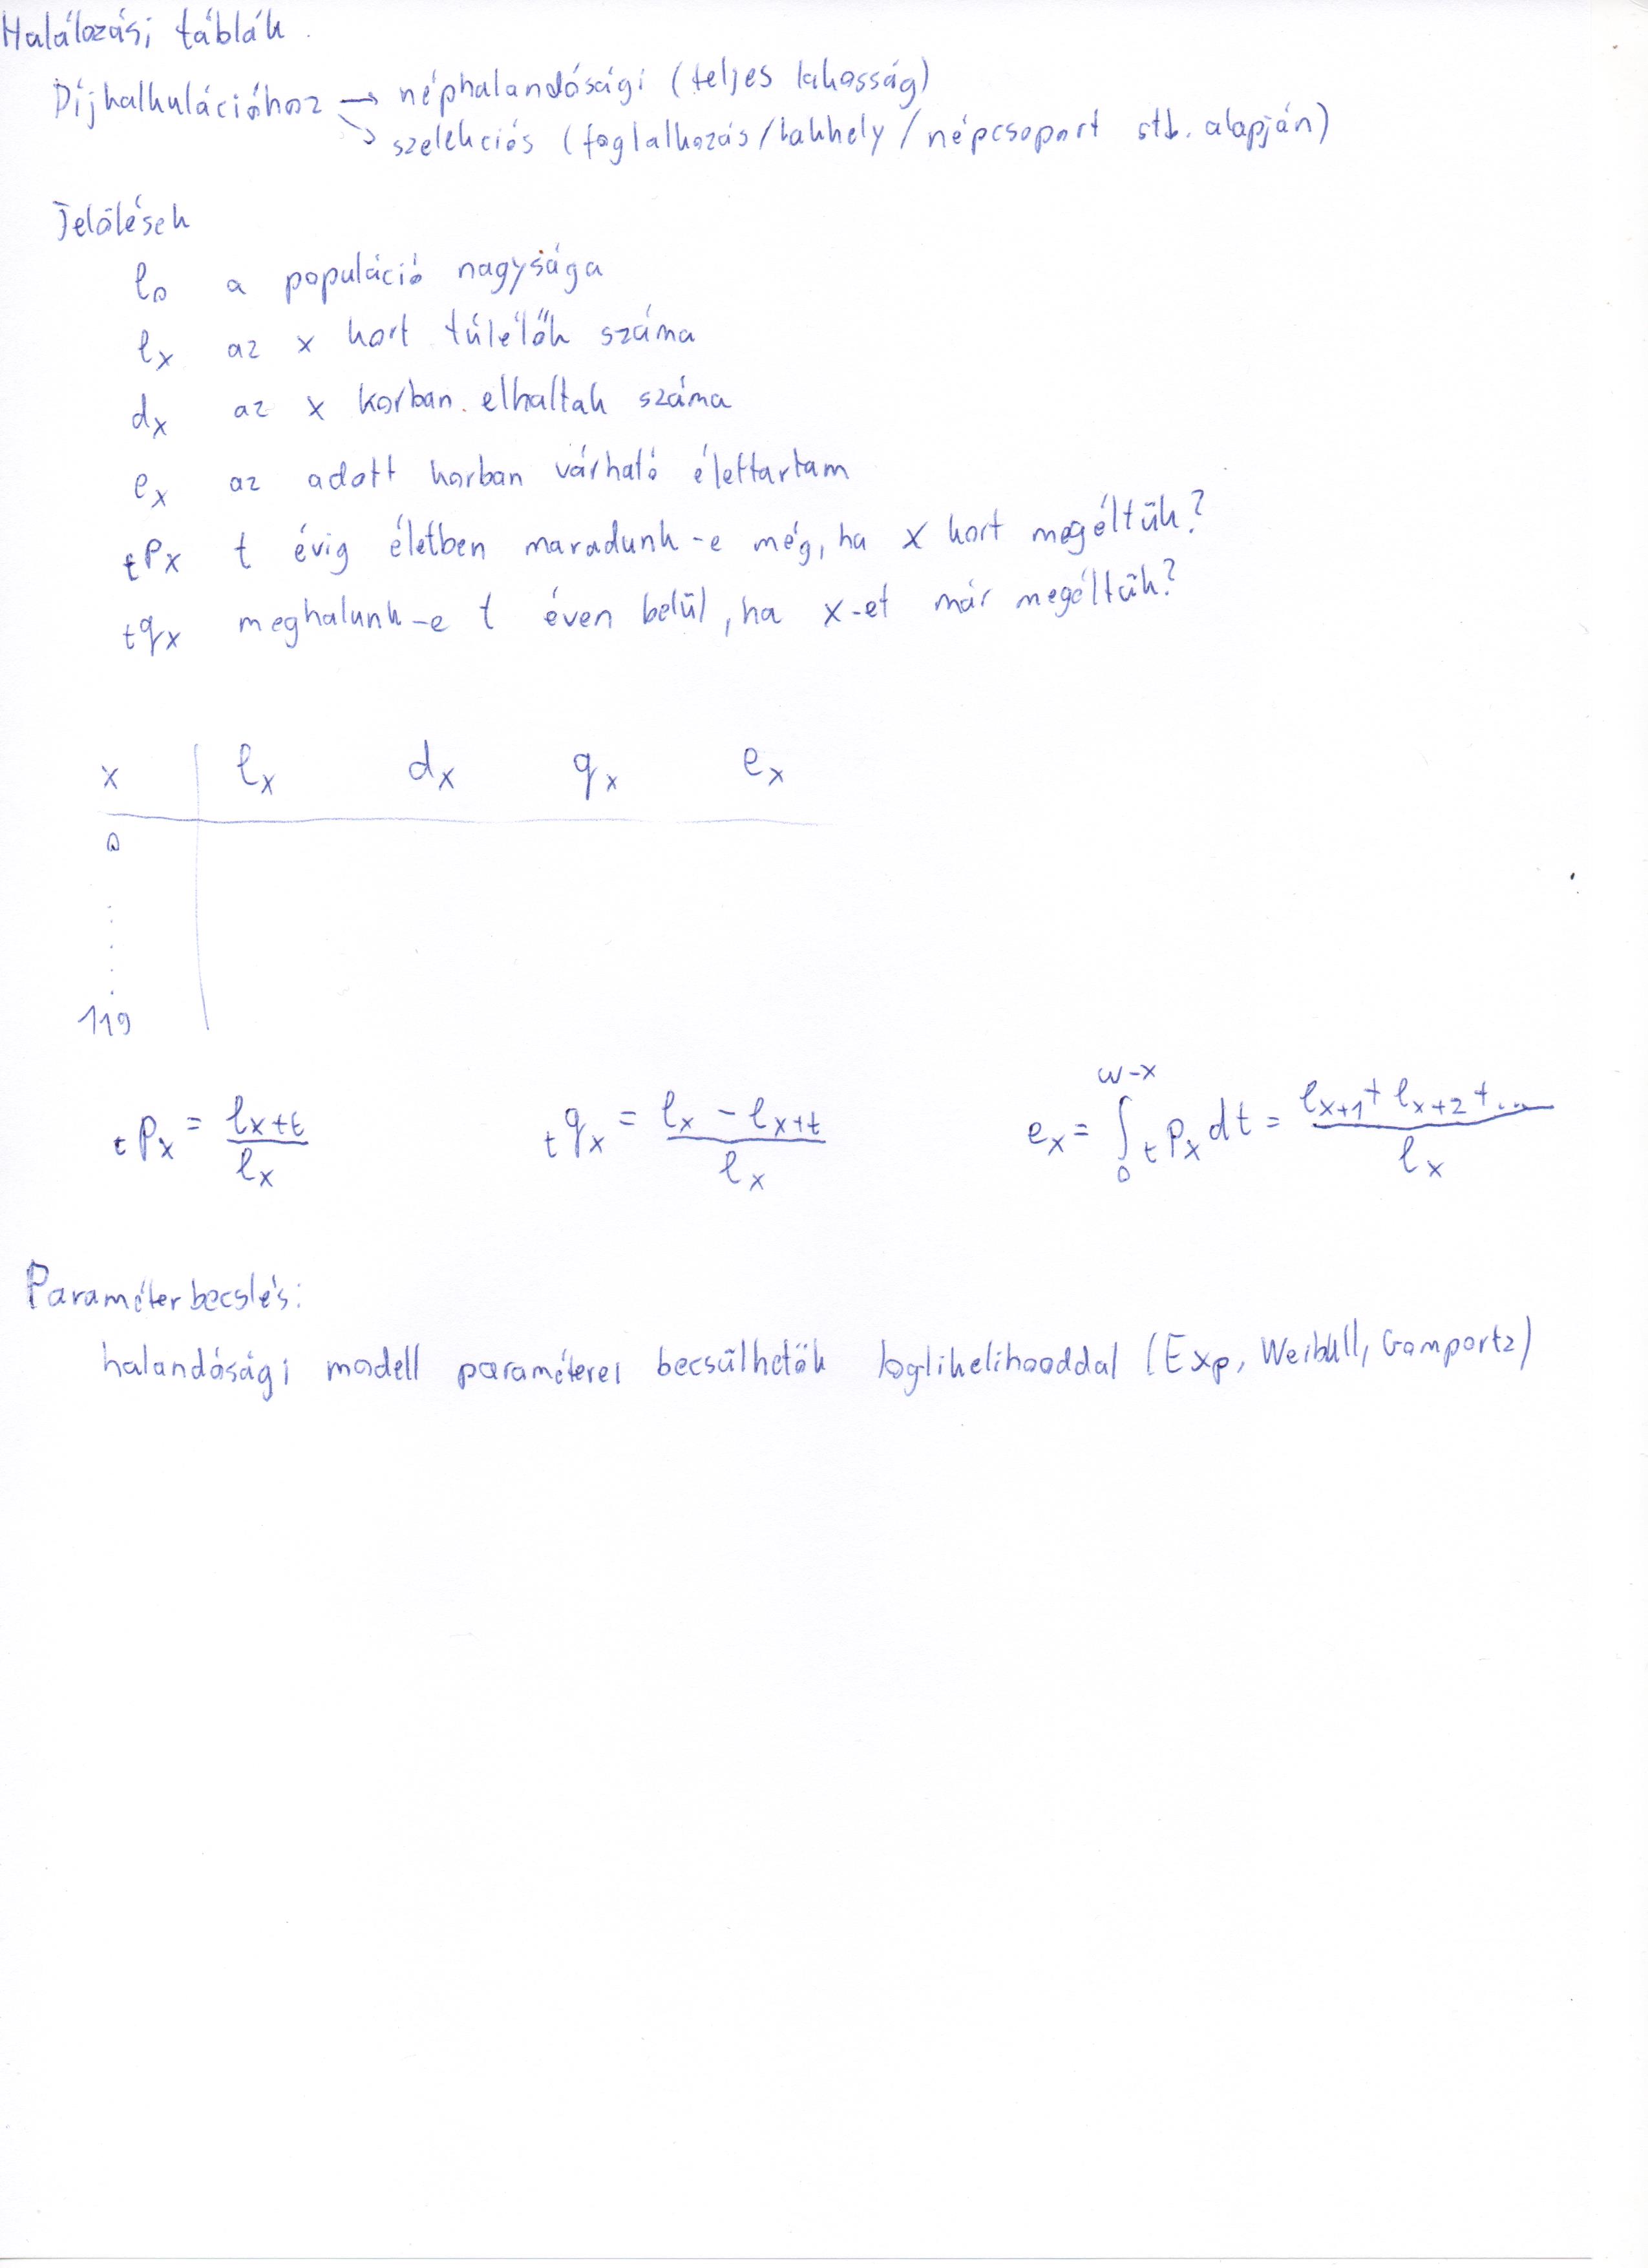 Halálozási táblák.
Díjkalkulációhoz → néphalandósági (teljes lakosság)
↘ szelekciós (foglalkozás/lakhely/népcsoport stb. alapján)
Jelölések
l₀ a populáció nagysága
lₓ az x kort túlélők száma
dₓ az x korban elhaltak száma
eₓ az adott korban várható élettartam
ₜpₓ t évig életben maradunk-e még, ha x kort megéltük?
ₜqₓ meghalunk-e t éven belül, ha x-et már megéltük?
x | lₓ dₓ qₓ eₓ
0
⋮
119
ₜpₓ = l_{x+t} / lₓ   ₜqₓ = (lₓ - l_{x+t}) / lₓ   eₓ = ∫₀^{ω-x} ₜpₓ dt = (l_{x+1} + l_{x+2} + ...) / lₓ
Paraméterbecslés:
halandósági modell paraméterei becsülhetők loglikelihooddal (Exp, Weibull, Gompertz)